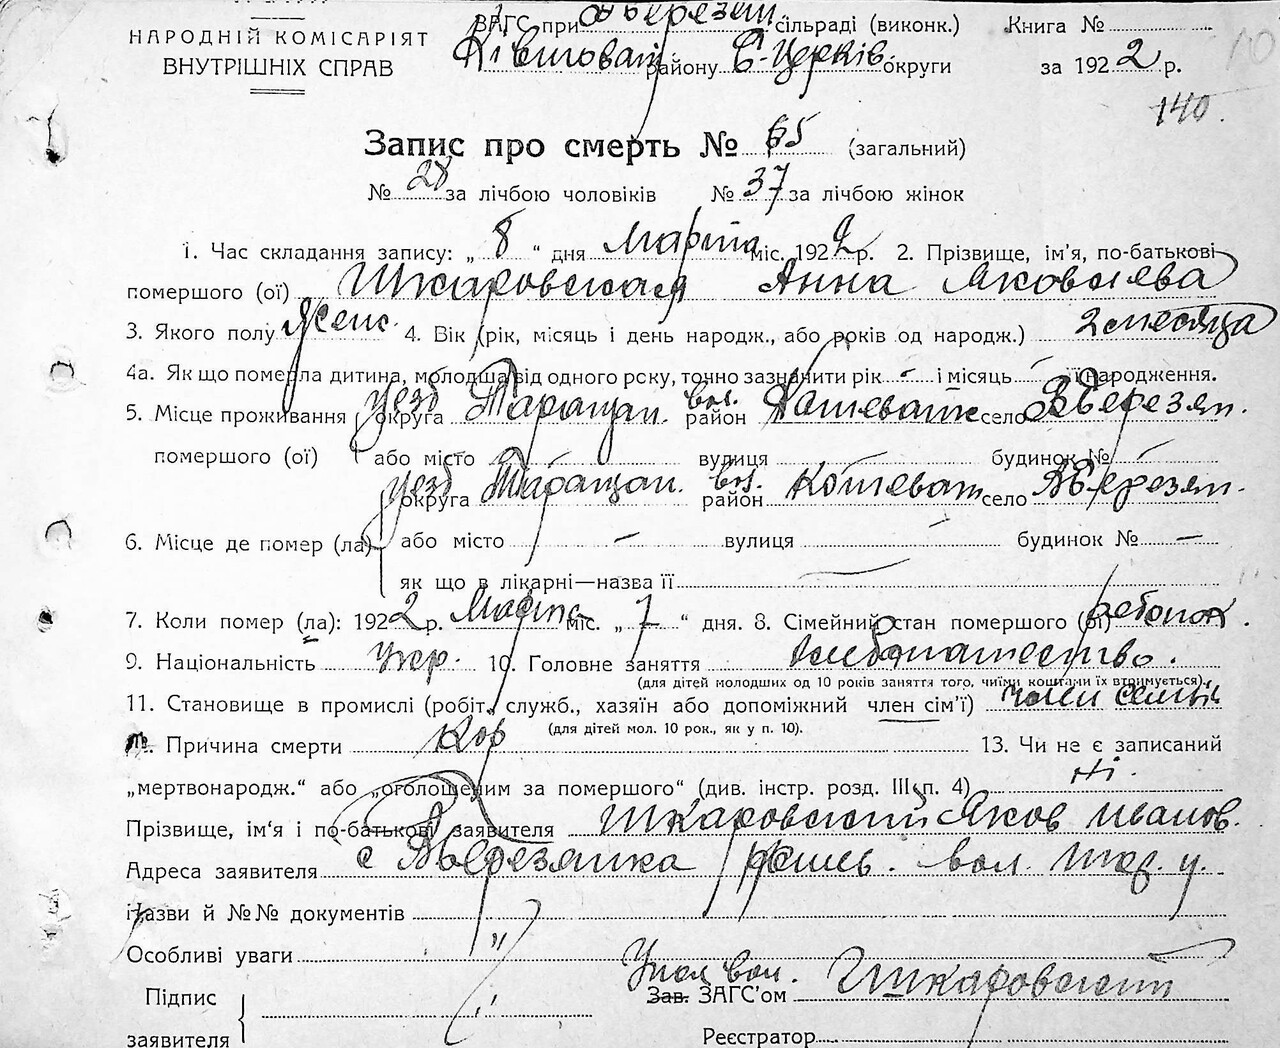 НАРОДНІЙ КОМІСАРІЯТ
ВНУТРІШНІХ СПРАВ
ЗАГС при сільраді (виконк.)
району Б-Церків. округи
Книга №
за 1922 р.
140.
Запис про смерть № 65 (загальний)
№ 28 за лічбою чоловіків № 37 за лічбою жінок
1. Час складання запису: „ 8 “ дня Марта міс. 1922 р. 2. Прізвище, ім'я, по-батькові
помершого (ої) Шкаровская Анна Яковлева
3. Якого полу женс. 4. Вік (рік, місяць і день народж., або років од народж.) 2 месяца
4а. Як що померла дитина, молодша від одного року, точно зазначити рік - і місяць - її народження.
5. Місце проживання помершого (ої) уезд округа Таращан. вол. район село
або місто вулиця будинок №
6. Місце де помер (ла) уезд округа Таращан. вол. район село
або місто — вулиця будинок № —
як що в лікарні—назва її
7. Коли помер (ла): 1922 р. Марта міс. „ 7 “ дня. 8. Сімейний стан помершого (ої) ребенок.
9. Національність Укр. 10. Головне заняття хлебопашество.
(для дітей молодших од 10 років заняття того, чиїми коштами їх втримується).
11. Становище в промислі (робіт., служб., хазяїн або допоміжний член сім'ї) член семьи
(для дітей мол. 10 рок., як у п. 10).
Причина смерти Кор 13. Чи не є записаний
„мертвонародж.“ або „оголошеним за помершого“ (див. інстр. розд. III, п. 4) Ні.
Прізвище, ім'я і по-батькові заявителя Шкаровский Яков Иванов.
Адреса заявителя с вол. у.
Назви й №№ документів
Особливі уваги „
Підпис
заявителя
вол.
Зав. ЗАГС'ом Шкаровский
Реєстратор